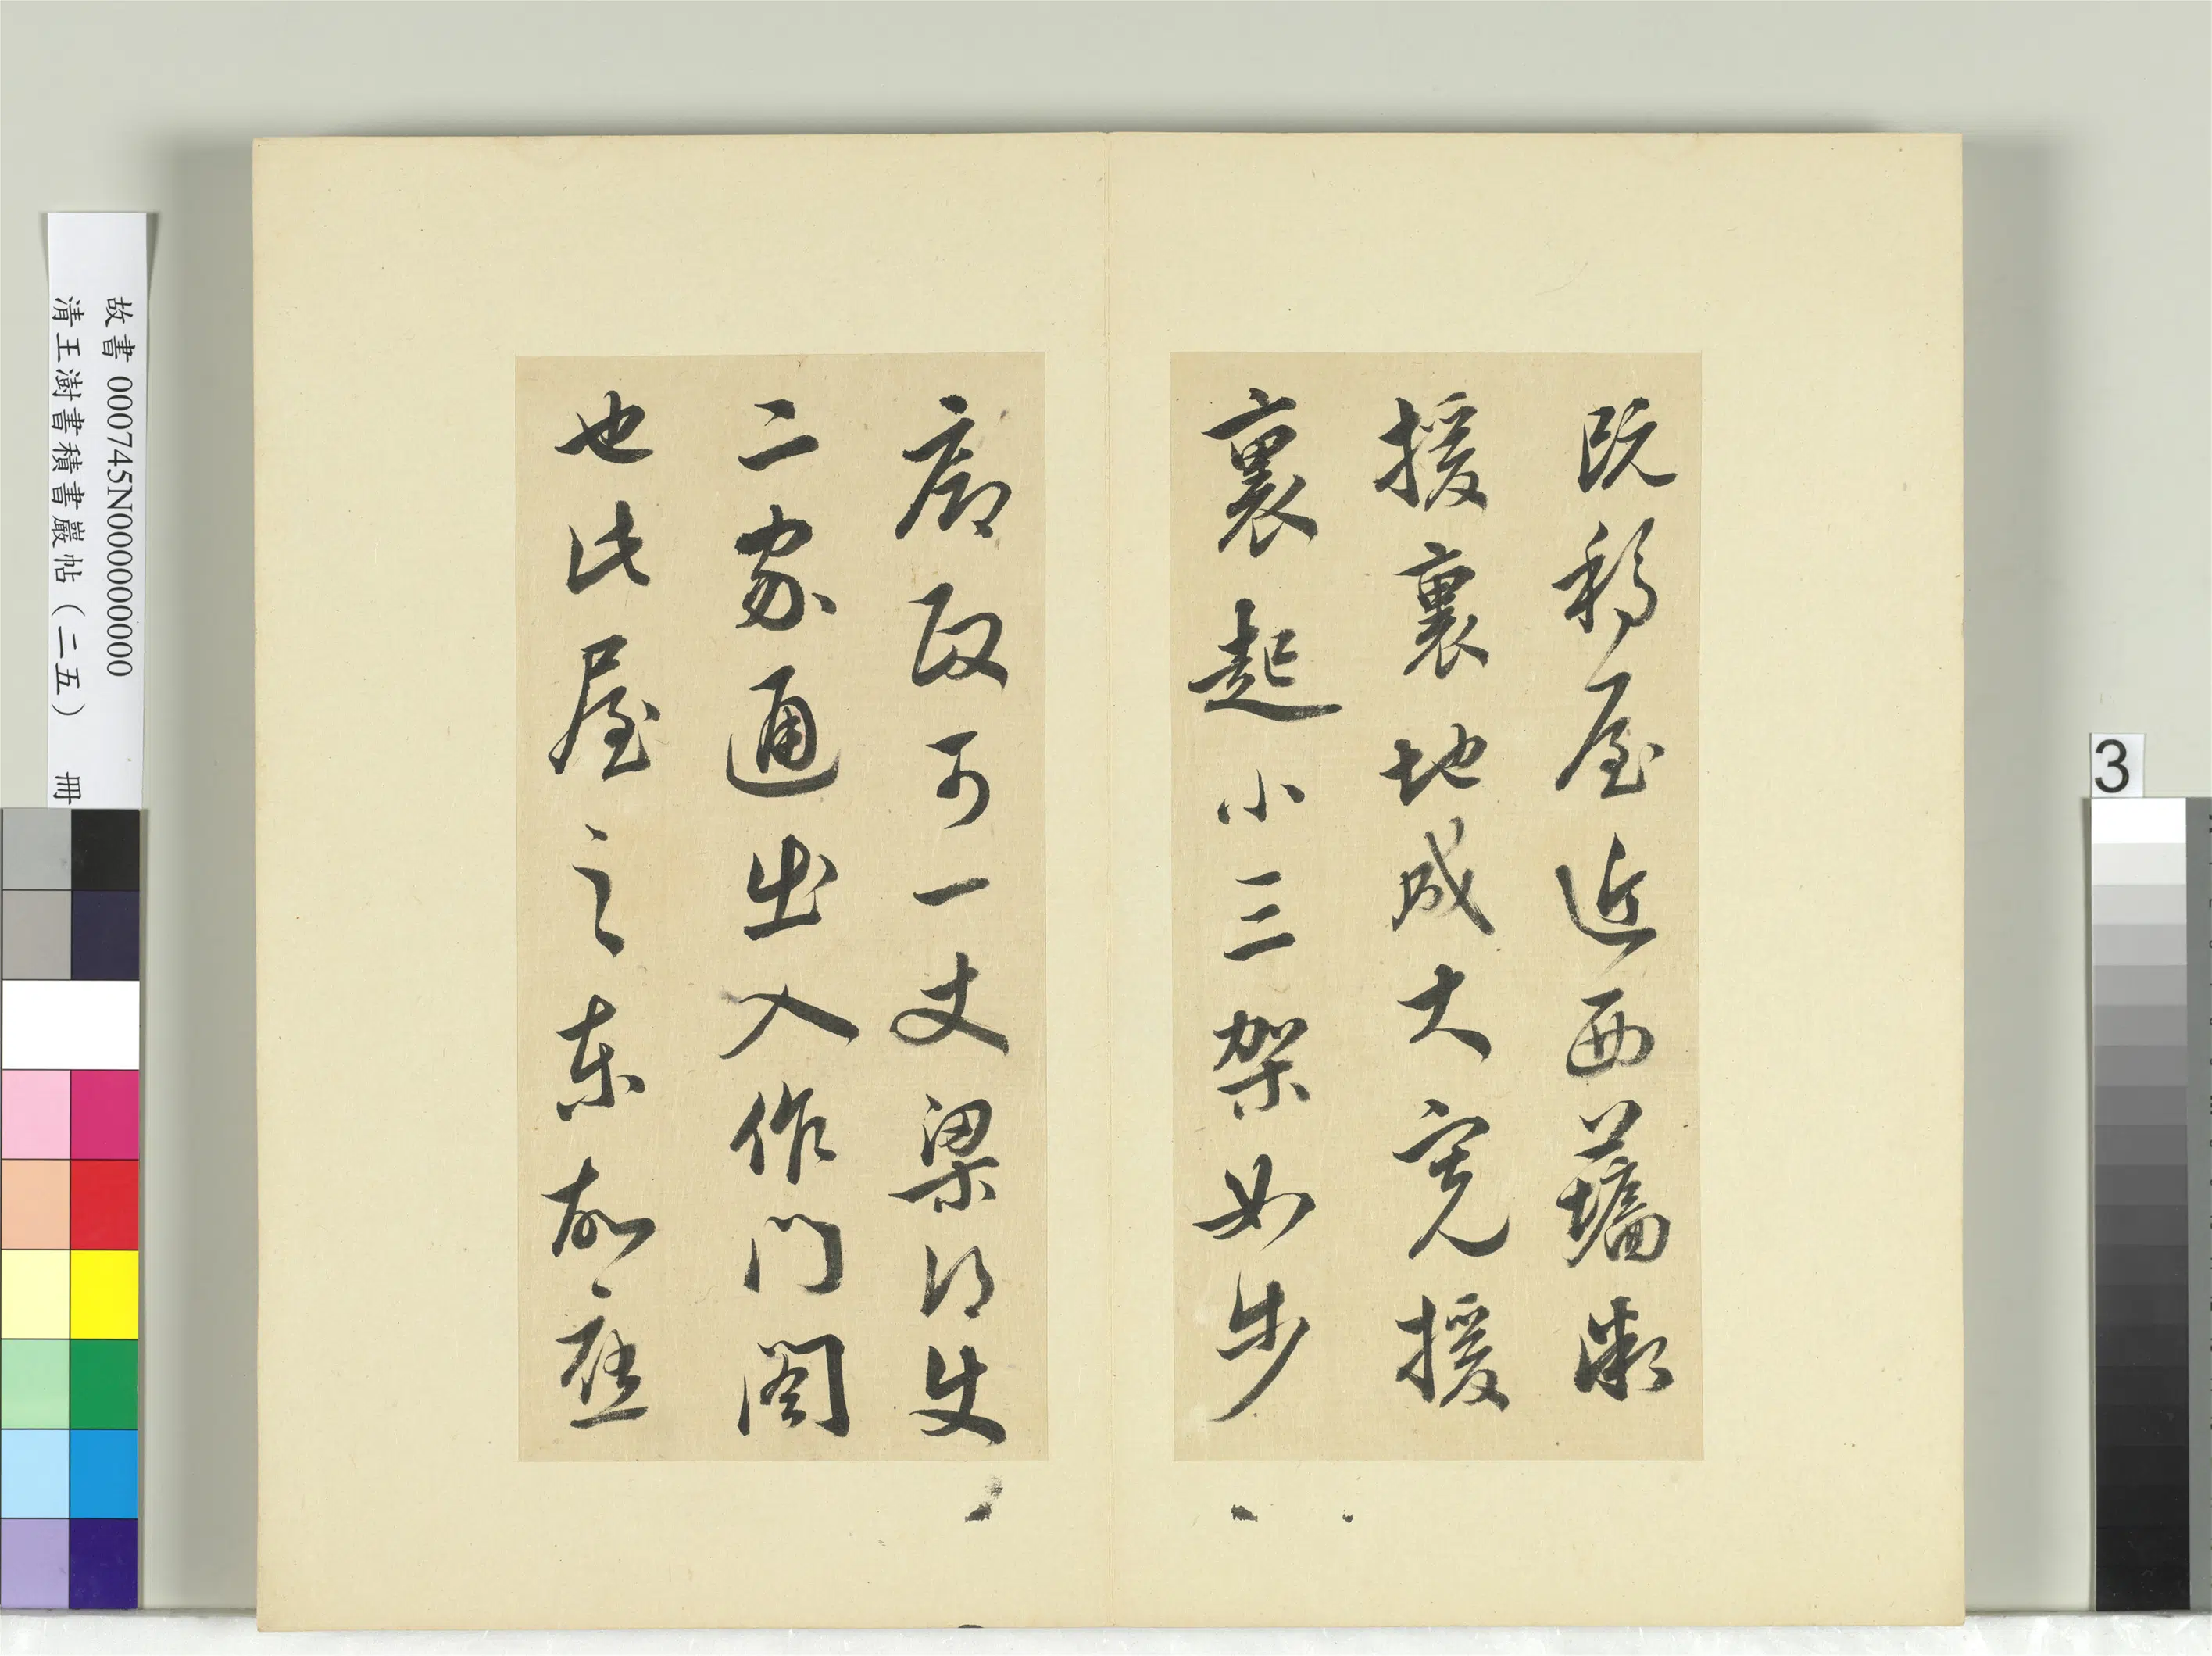 既移屋近西牆漸
援裏地成大寬援
裏起小三架如步
廊段可一丈梁得使
二家通出入作門閣
也此屋之東故應
故書 000745N000000000
清王澍書積書巖帖(二五) 冊
3